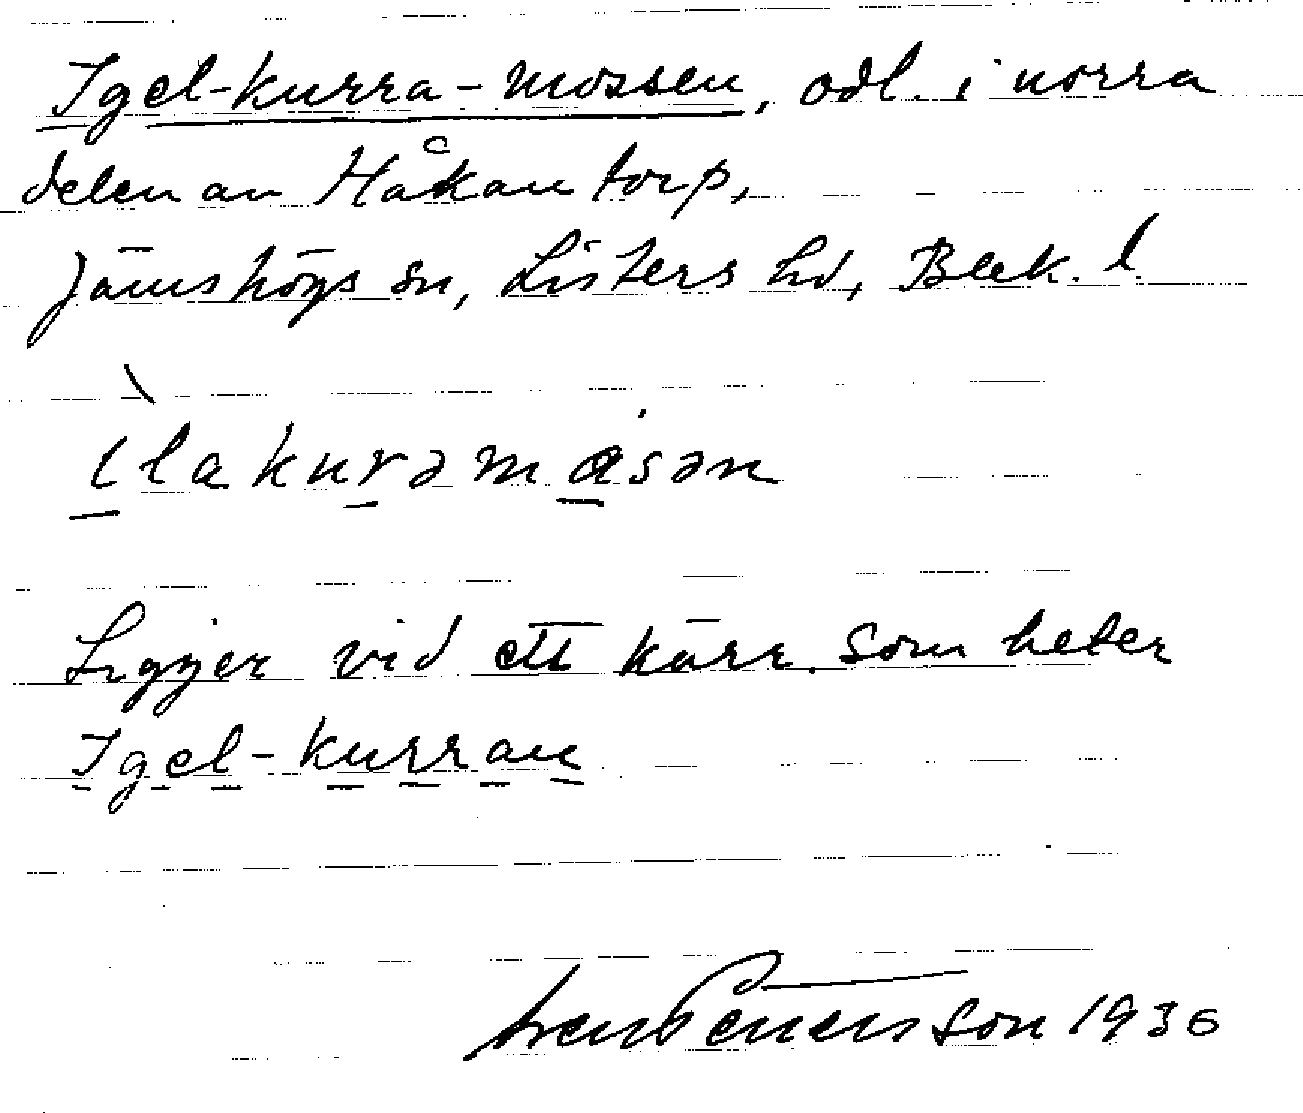 Igel-kurra-mossen, odl. i norra
delen av Håkantorp,
Jämshögs sn, Listers hd, Blek. l.
ılakurəmɑsən
Ligger vid ett kärr som heter
Igel-kurran
Sven Petersson 1936